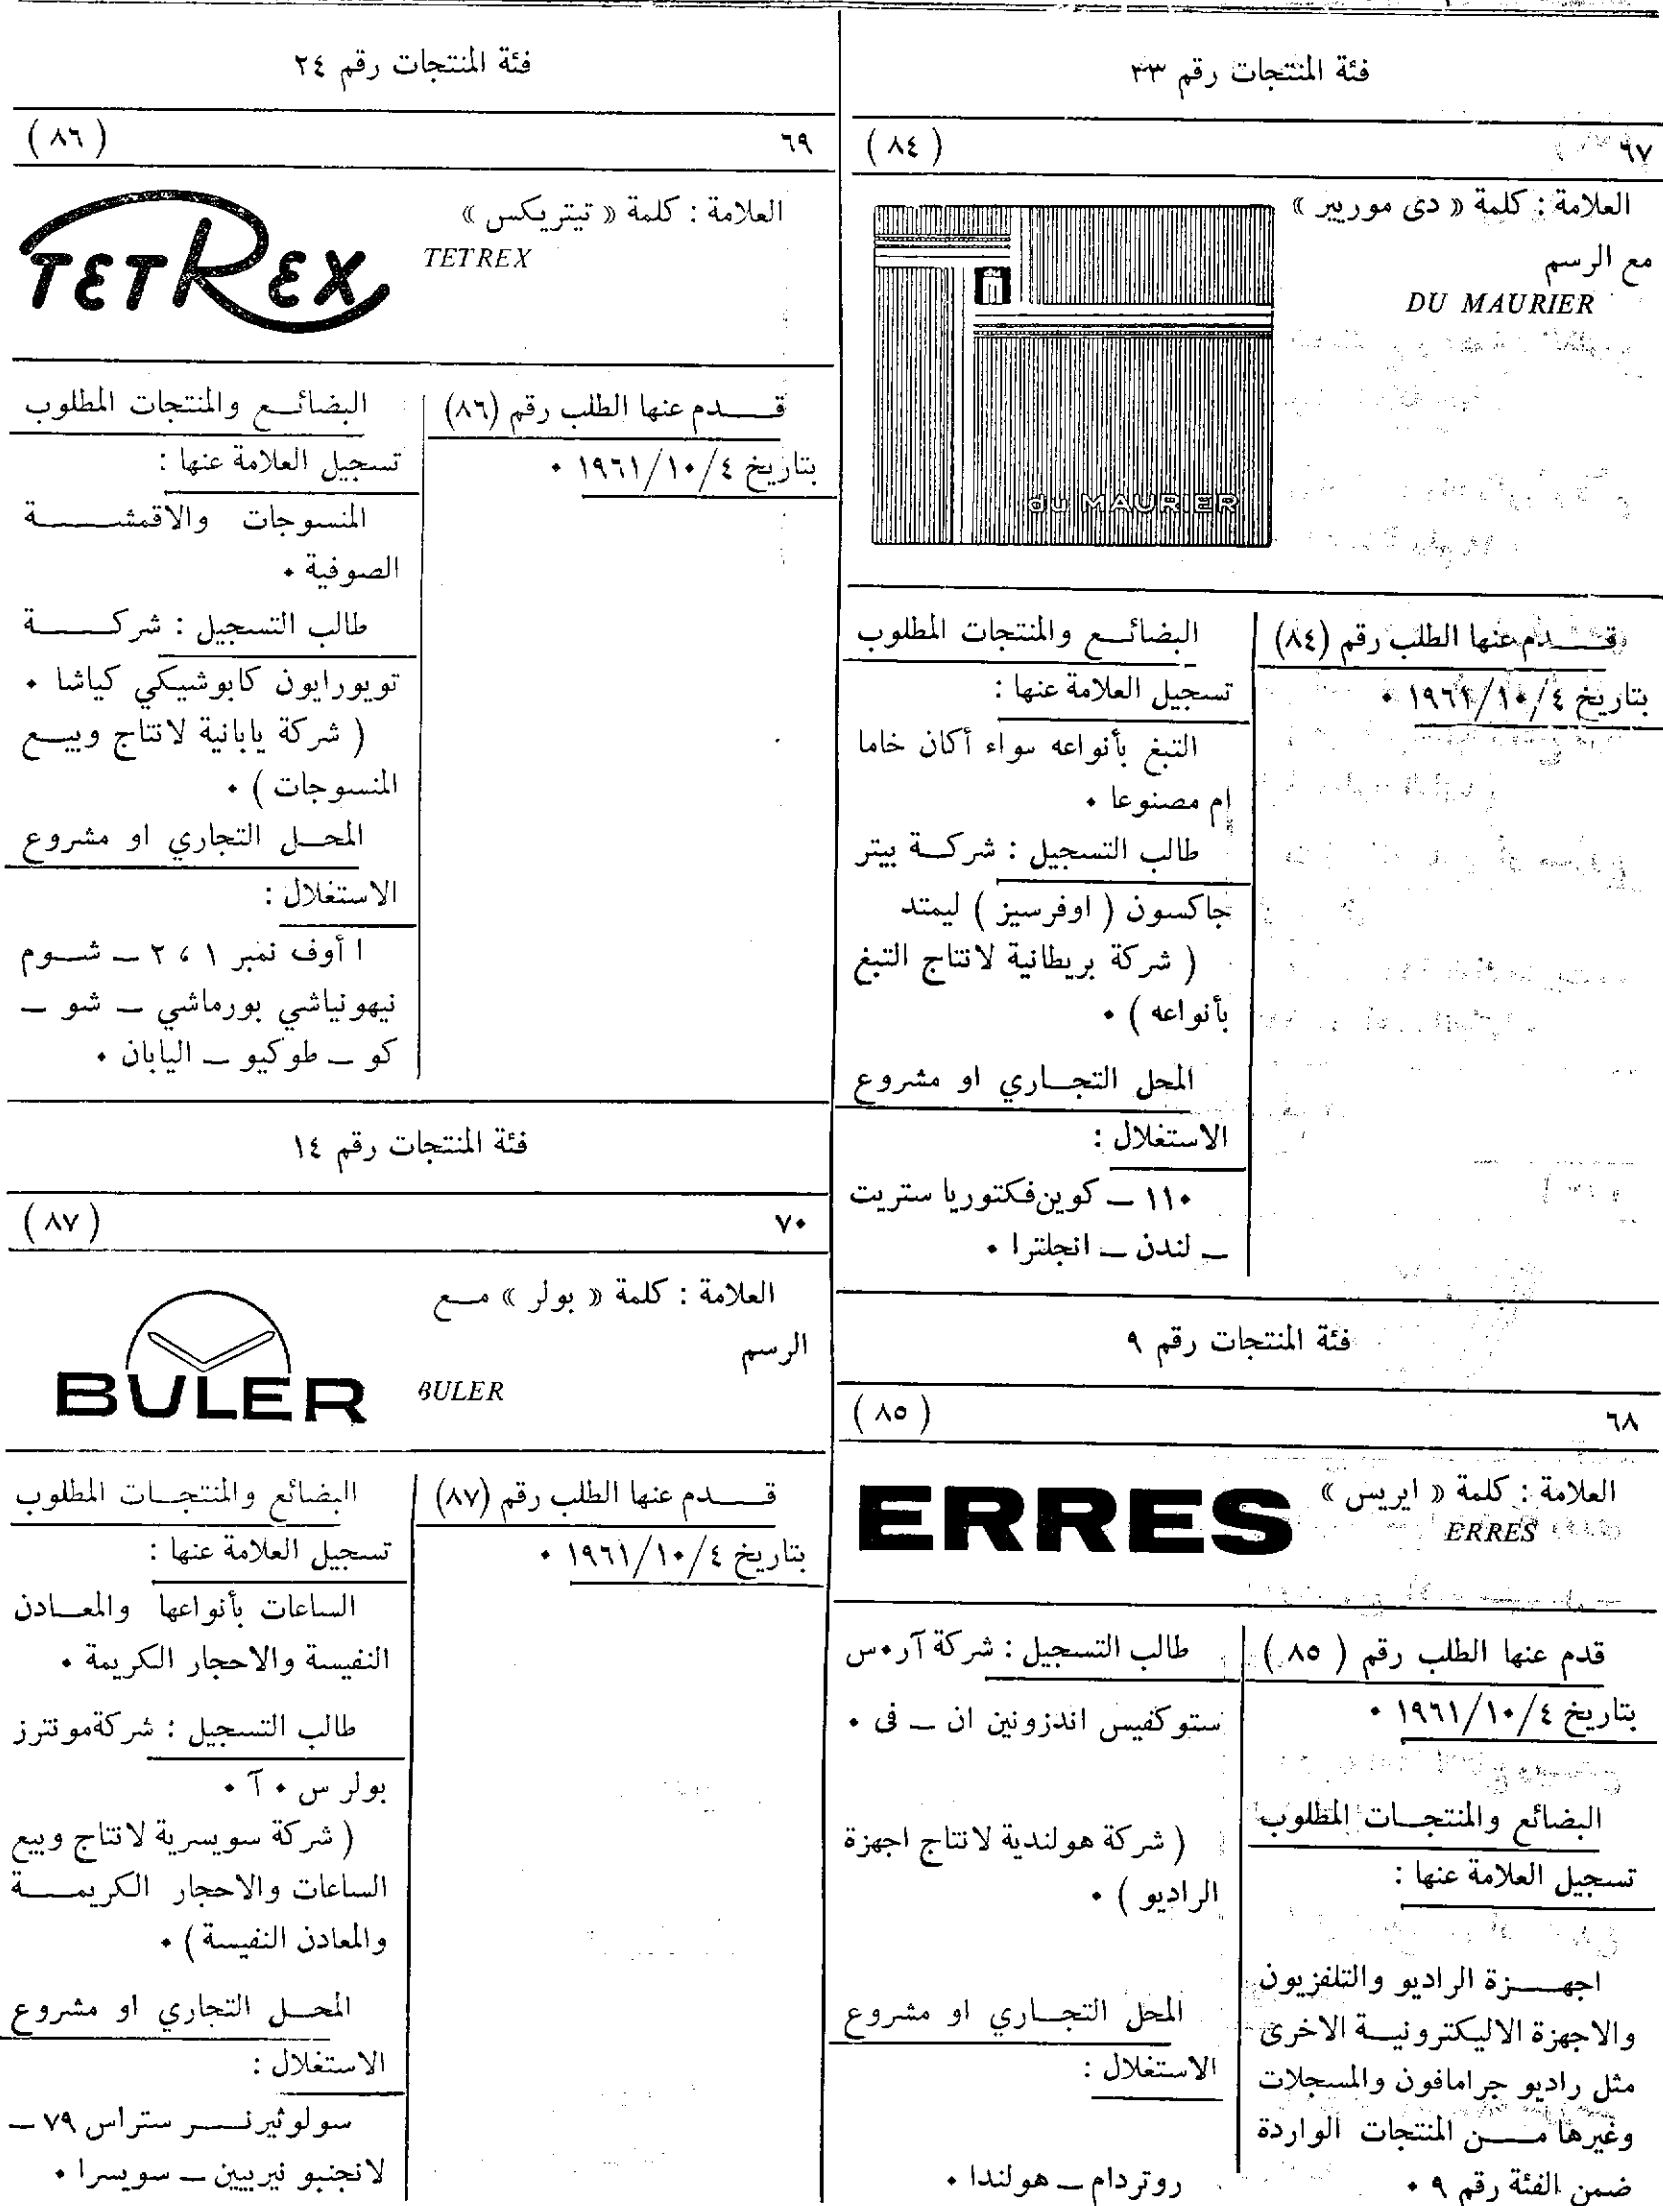 فئة المنتجات رقم ٣٣
٦٧
( ٨٤ )
العلامة : كلمة « دى موريير »
مع الرسم
DU MAURIER
du MAURIER
قـــدم عنها الطلب رقم (٨٤)
بتاريخ ١٩٦١/١٠/٤ ٠
البضائــع والمنتجات المطلوب
تسجيل العلامة عنها :
التبغ بأنواعه سواء أكان خاما
ام مصنوعا ٠
طالب التسجيل : شركــة بيتر
جاكسون ( اوفرسيز ) ليمتد
( شركة بريطانية لانتاج التبغ
بأنواعه ) ٠
المحل التجــاري او مشروع
الاستغلال :
١١٠ ــ كوين فكتوريا ستريت
ــ لندن ــ انجلترا ٠
فئة المنتجات رقم ٩
٦٨
( ٨٥ )
العلامة : كلمة « ايريس »
ERRES
ERRES
قدم عنها الطلب رقم ( ٨٥ )
بتاريخ ١٩٦١/١٠/٤ ٠
البضائع والمنتجــات المطلوب
تسجيل العلامة عنها :
اجهــــزة الراديو والتلفزيون
والاجهزة الاليكترونيــة الاخرى
مثل راديو جرامافون والمسجلات
وغيرها مــــن المنتجات الواردة
ضمن الفئة رقم ٩ ٠
طالب التسجيل : شركة آر٠س
ستوكفيس اندزونين ان ــ فى ٠
( شركة هولندية لانتاج اجهزة
الراديو ) ٠
المحل التجــاري او مشروع
الاستغلال :
روتردام ــ هولندا ٠
فئة المنتجات رقم ٢٤
٦٩
( ٨٦ )
العلامة : كلمة « تيتريكس »
TETREX
TETREX
قــــدم عنها الطلب رقم (٨٦)
بتاريخ ١٩٦١/١٠/٤ ٠
البضائــع والمنتجات المطلوب
تسجيل العلامة عنها :
المنسوجات والاقمشــــة
الصوفية ٠
طالب التسجيل : شركــــة
تويورايون كابوشيكي كياشا ٠
( شركة يابانية لانتاج وبيــع
المنسوجات ) ٠
المحــل التجاري او مشروع
الاستغلال :
ا أوف نمبر ١ ، ٢ ــ شــوم
نيهونياشي بورماشي ــ شو ــ
كو ــ طوكيو ــ اليابان ٠
فئة المنتجات رقم ١٤
٧٠
( ٨٧ )
العلامة : كلمة « بولر » مــع
الرسم
BULER
BULER
قــــدم عنها الطلب رقم (٨٧)
بتاريخ ١٩٦١/١٠/٤ ٠
البضائع والمنتجــات المطلوب
تسجيل العلامة عنها :
الساعات بأنواعها والمعــادن
النفيسة والاحجار الكريمة ٠
طالب التسجيل : شركة مونترز
بولر س ٠ آ ٠
( شركة سويسرية لانتاج وبيع
الساعات والاحجار الكريمــــة
والمعادن النفيسة ) ٠
المحــل التجاري او مشروع
الاستغلال :
سولوثيرنــــر ستراس ٧٩ ــ
لانجنبو نيربيين ــ سويسرا ٠